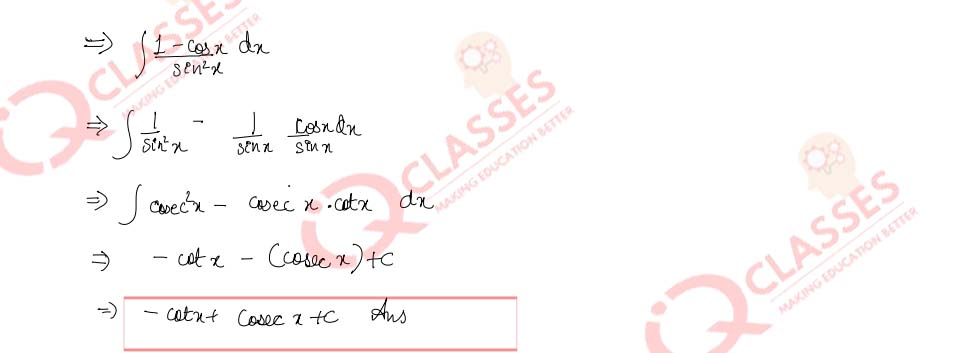 ⇒ ∫ 1 - cosx / sin²x dx
⇒ ∫ 1 / sin²x - 1 / sinx cosx dx / sin x
⇒ ∫ cosec²x - cosec x . cotx dx
⇒ - cot x - (cosec x) + c
⇒ - cotx + cosec x + c Ans
IQ CLASSES
MAKING EDUCATION BETTER
IQ CLASSES
MAKING EDUCATION BETTER
IQ CLASSES
MAKING EDUCATION BETTER